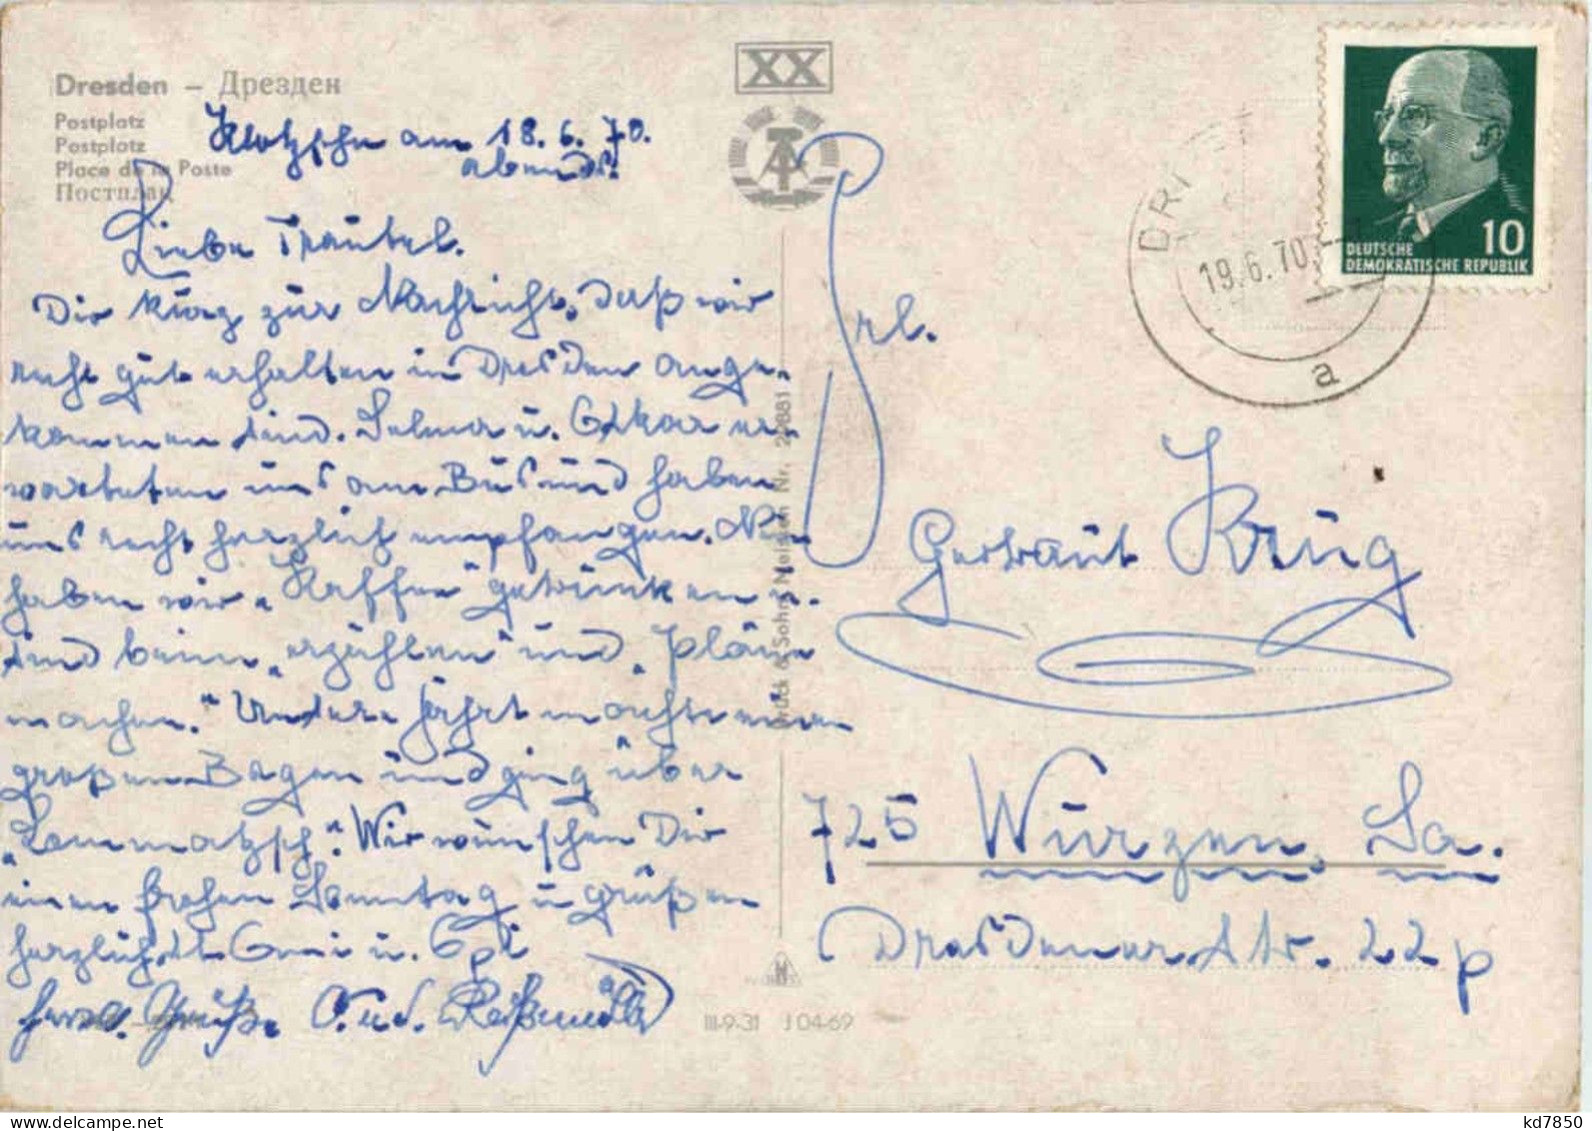 Dresden – Дрезден
Postplatz
Postplatz
Place de la Poste
Постплац
XX
Klotzsche am 18. 6. 70.
abends.
Liebe Trautel.
Dir kurz zur Nachricht, daß wir
recht gut erhalten in Dresden ange-
kommen sind. Selma u. Oskar er-
warteten uns am Bus und haben
uns recht herzlich empfangen. Nun
haben wir „Kaffee" getrunken u.
sind beim „erzählen" und „Pläne
machen." Unsere Fahrt machte einen
großen Bogen und ging über
„Lommatzsch". Wir wünschen Dir
einen frohen Sonntag u grüßen
herzlich, Omi u. Opi
herzl. Grüße O. u. S.
Druck & Sohn, Meissen Nr.
III-9-31 J 04-69
DEUTSCHE
DEMOKRATISCHE REPUBLIK
10
19.6.70
a
Frl.
Gertraut Krug
725 Wurzen, Sa.
Dresdener Str. 22p
kd7850